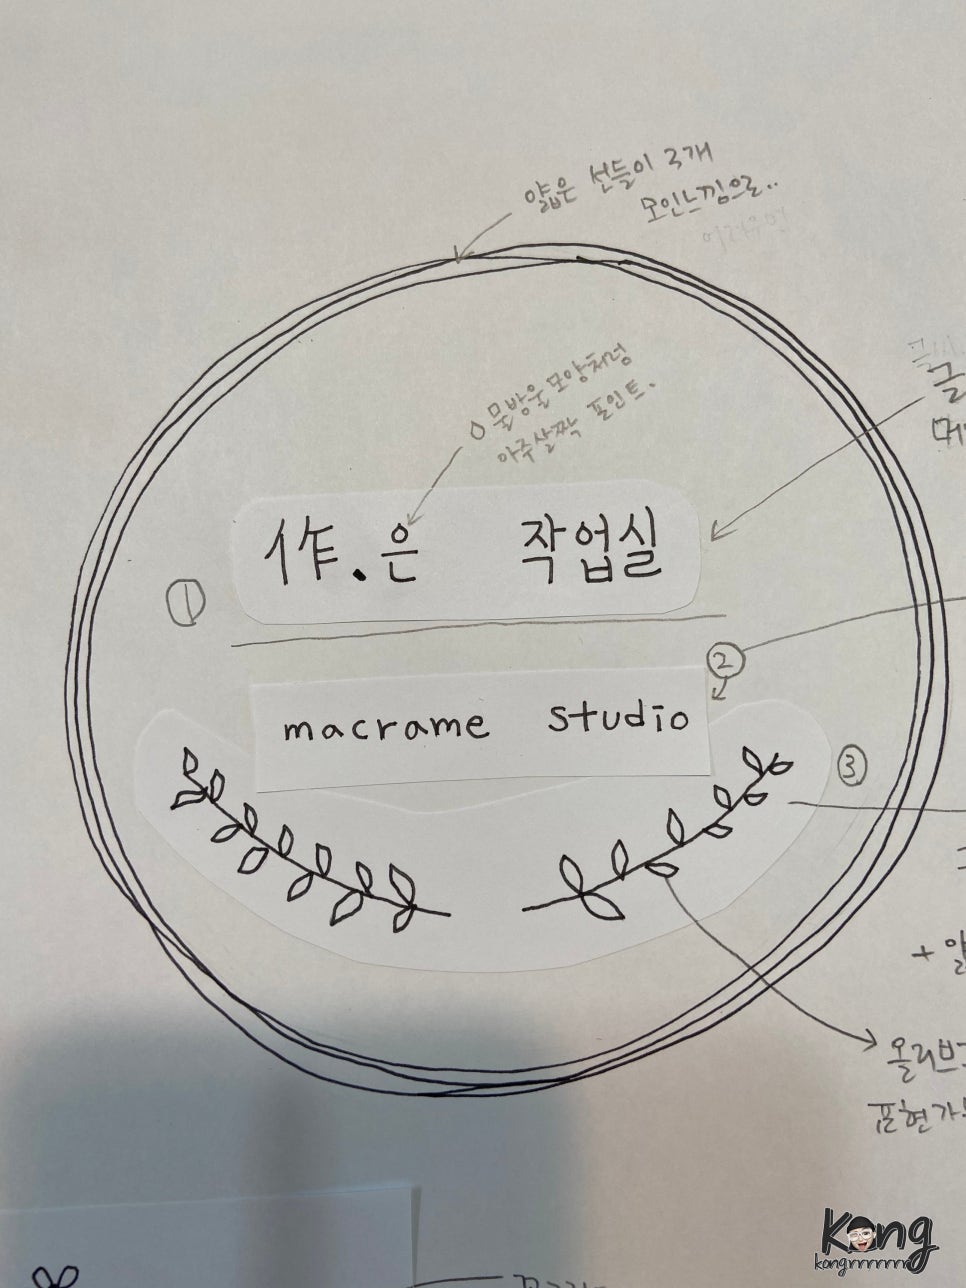 얇은 선들이 3개
모인느낌으로..
물방울 모양처럼
아주살짝 포인트.
作.은 작업실
①
②
macrame studio
③
+
올리브
표현가
Kong
kongrrrrrrr